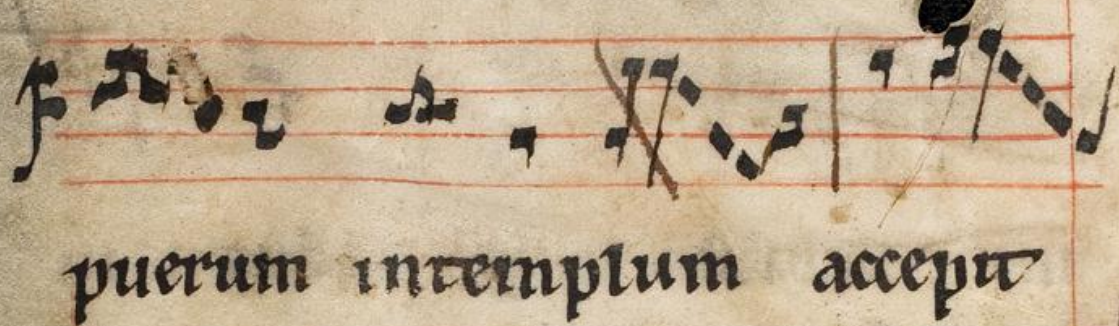 puerum intemplum accepit